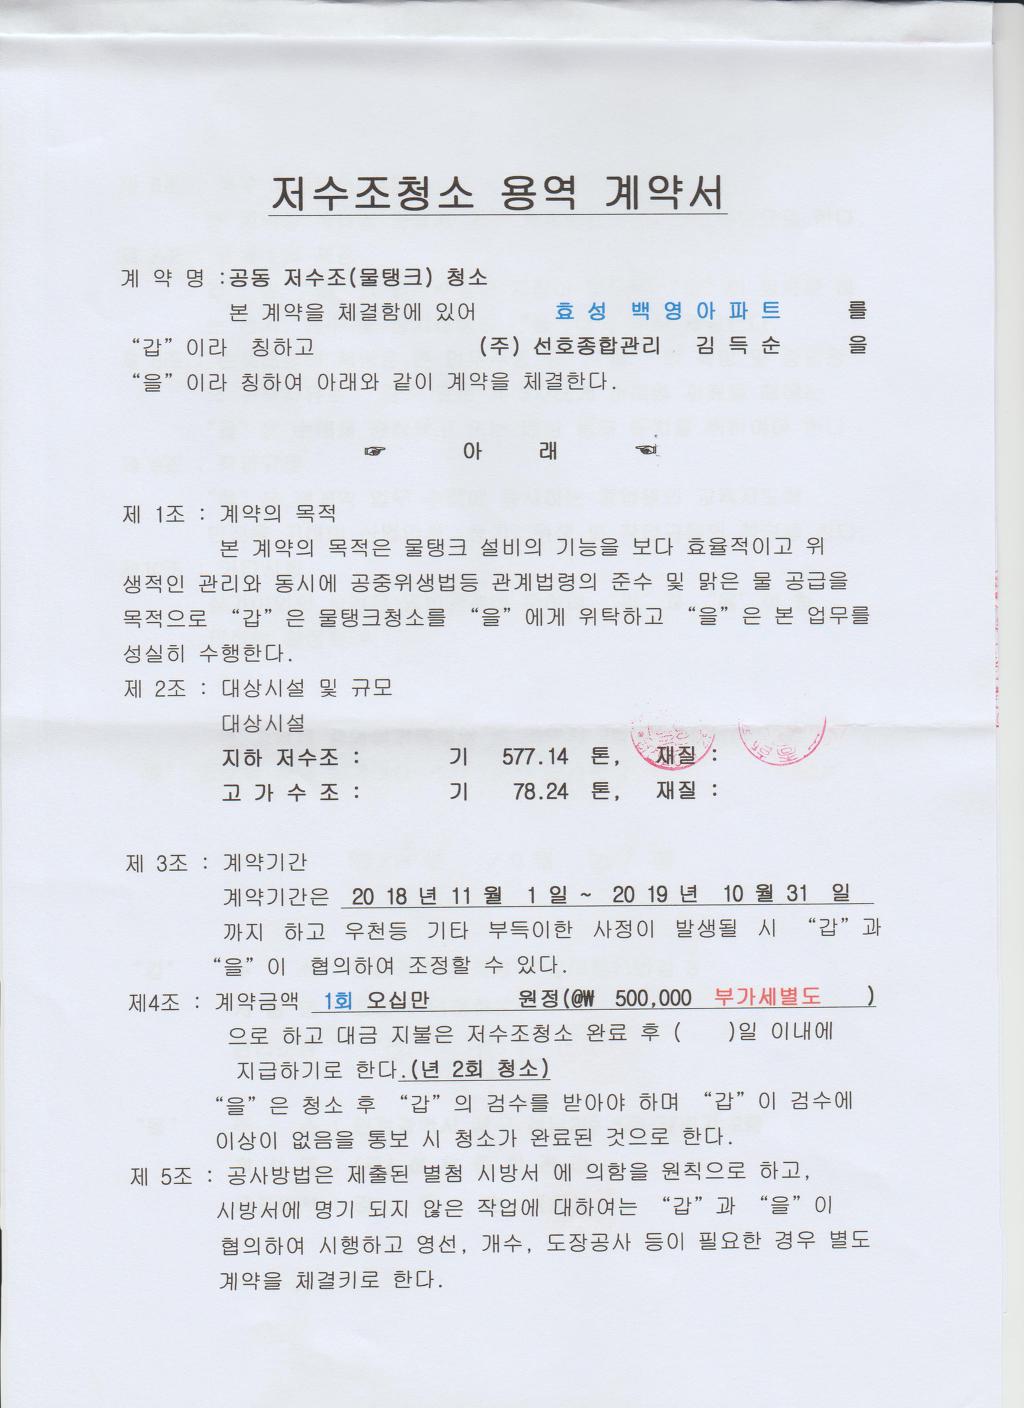 저수조청소 용역 계약서
계 약 명 :공동 저수조(물탱크) 청소
본 계약을 체결함에 있어 효 성 백 영 아 파 트 를
“갑” 이라 칭하고 (주) 선호종합관리 . 김 득 순 을
“을” 이라 칭하여 아래와 같이 계약을 체결한다.
☞ 아 래 ☜
제 1조 : 계약의 목적
본 계약의 목적은 물탱크 설비의 기능을 보다 효율적이고 위
생적인 관리와 동시에 공중위생법등 관계법령의 준수 및 맑은 물 공급을
목적으로 “갑” 은 물탱크청소를 “을” 에게 위탁하고 “을” 은 본 업무를
성실히 수행한다.
제 2조 : 대상시설 및 규모
대상시설
지하 저수조 : 기 577.14 톤, 재질 :
고 가 수 조 : 기 78.24 톤, 재질 :
제 3조 : 계약기간
계약기간은 20 18 년 11 월 1 일 ~ 20 19 년 10 월 31 일
까지 하고 우천등 기타 부득이한 사정이 발생될 시 “갑” 과
“을” 이 협의하여 조정할 수 있다.
제4조 : 계약금액 1회 오십만 원정(@₩ 500,000 부가세별도 )
으로 하고 대금 지불은 저수조청소 완료 후 ( )일 이내에
지급하기로 한다.(년 2회 청소)
“을” 은 청소 후 “갑” 의 검수를 받아야 하며 “갑” 이 검수에
이상이 없음을 통보 시 청소가 완료된 것으로 한다.
제 5조 : 공사방법은 제출된 별첨 시방서 에 의함을 원칙으로 하고,
시방서에 명기 되지 않은 작업에 대하여는 “갑” 과 “을” 이
협의하여 시행하고 영선, 개수, 도장공사 등이 필요한 경우 별도
계약을 체결키로 한다.